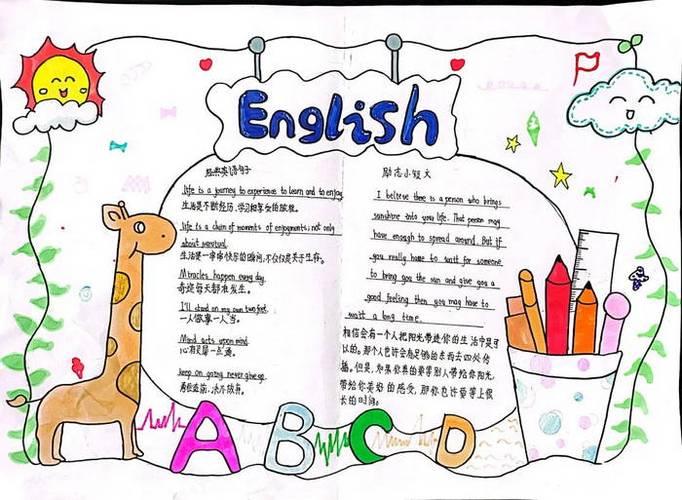 English
经典英语句子
life is a journey to experience to learn and to enjoy
生活是不断经历、学习和享受的旅程。
life is a chain of moments of enjoyments; not only
about survival
生活是一串串快乐的瞬间,不仅仅是关于生存。
Miracles happen every day.
奇迹每天都在发生。
I'll stand on my own two feet.
一人做事一人当。
Mind acts upon mind.
心有灵犀一点通。
keep on going never give up.
勇往直前,决不放弃。
励志小短文
I believe there is a person who brings
sunshine into your life. That person may
have enough to spread around. But if
you really have to wait for someone
to bring you the sun and give you a
good feeling then you may have to
wait a long time.
相信会有一个人把阳光带进你的生活中是可
以的。那个人也许会有足够的东西去四处传
播。但是,如果你真的要等别人带给你阳光,
带给你美好的感受,那你也许要等上很
长的时间。
A B C D